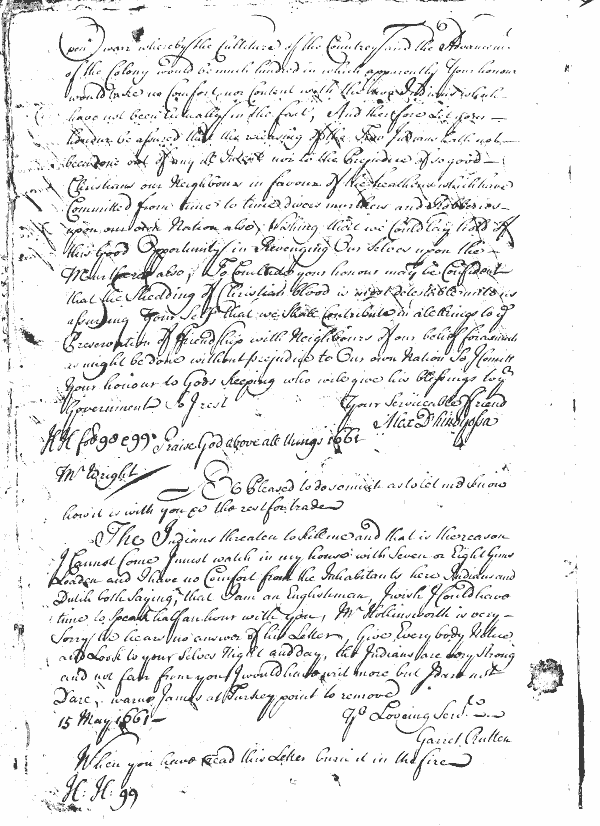 open warr whereby the Culture of the Countrey and the Advancem.t
of the Colony would be much hindred in which apparently Your honour
would take no Comfort nor Content with the two Indians which
have not been actually in the fact, And therefore Let your
honour be assured that the releasing of the Two Indians hath not
been done out of any ill Intent nor to the Prejudice of so good
Christians our Neighbours in favour of the heathens which have
Committed from time to time divers murthers and Robberies
upon our own Nation also, wishing that we Could lay hold of
this Good Opportunity in Revenging Our Selves upon the
Murtherers also, To Conclude your honour may be Confident
that the Shedding of Christian blood is most detestable unto us
assuring Your Self that we shall Contribute in all things to y.e
Preservation of friendship with Neighbours of our belief for as much
as might be done without prejudice to Our own Nation So I Comitt
Your honour to Gods keeping who will give his blessings to y.r
Government So I rest Your Serviceable friend
Alex D'hinoyossa
H H fo 98 e 99 Praise God above all things 1661
M.r Wright
Be Pleased to do so much as to let me know
how it is with you & the rest for trade
The Indians threaten to kill me and that is the reason
I Cannot Come I must watch in my house with Seven or Eight Guns
Loaden and I have no Comfort from the Inhabitants here Indians and
Dutch both Saying that I am an Englishman, I wish I Could have
time to Speak half an hour with you, M.r Hollinsworth is very
Sorry he hears no answer of his Letter, Give Every body Notice
and Look to your Selves Night and day, the Indians are very Strong
and not far from you I would have writ more but I dare not
Dare, warne James at Turkey point to remove
15 May 1661 Yo.r Loveing Serv.t
Garret Rutten
When you have read this Letter burn it in the fire
H: H: 99